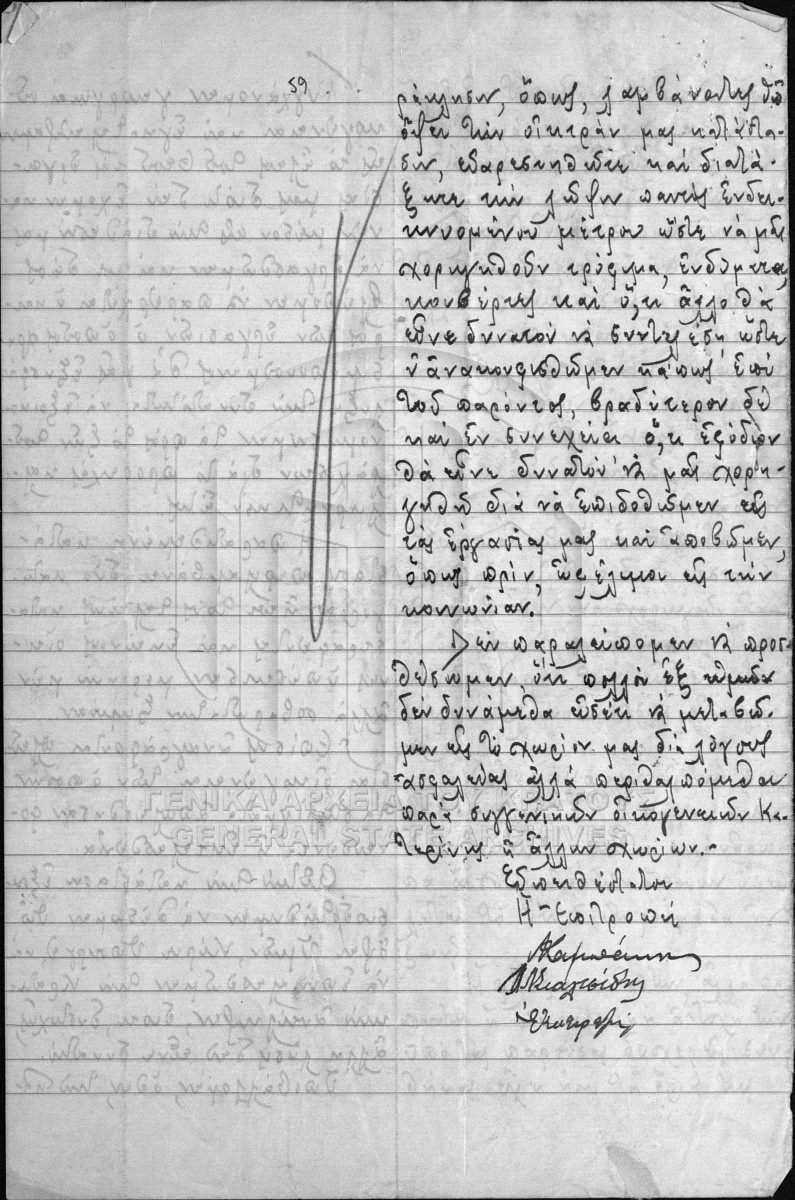 59
ράκλησιν, ὅπως, λαμβάνοντες ὑπ'
ὄψει τὴν οἰκτρὰν μας κατάστα-
σιν, εὐαρεστηθῆτε καὶ διατά-
ξητε τὴν λῆψιν παντὸς ἐνδει-
κνυομένου μέτρου ὥστε νὰ μᾶς
χορηγηθοῦν τρόφιμα, ἐνδύματα,
κουβέρτες καὶ ὅ,τι ἄλλο θὰ
εἶνε δυνατὸν νὰ συντελέσῃ ὥστε
ν' ἀνακουφισθῶμεν κάπως ἐπὶ
τοῦ παρόντος, βραδύτερον δὲ
καὶ ἐν συνεχείᾳ ὅ,τι ἐφόδιον
θὰ εἶνε δυνατὸν νὰ μᾶς χορη-
γηθῇ διὰ νὰ ἐπιδοθῶμεν εἰς
τὰς ἐργασίας μας καὶ ἀποβῶμεν,
ὅπως πρίν, ὠφέλιμοι εἰς τὴν
κοινωνίαν.
Δὲν παραλείπομεν νὰ προσ-
θέσωμεν, ὅτι πολλοὶ ἐξ ἡμῶν
δὲν δυνάμεθα εἰσέτι νὰ μεταβῶ-
μεν εἰς τὸ χωρίον μας διὰ λόγους
ἀσφαλείας ἀλλὰ περιθαλπόμεθα
παρὰ συγγενικῶν οἰκογενειῶν Κα-
τερίνης ἢ ἄλλων χωρίων.-
Εὐπειθέστατοι
Ἡ Ἐπιτροπὴ
ΓΕΝΙΚΑ ΑΡΧΕΙΑ ΤΟΥ ΚΡΑΤΟΥΣ
GENERAL STATE ARCHIVES